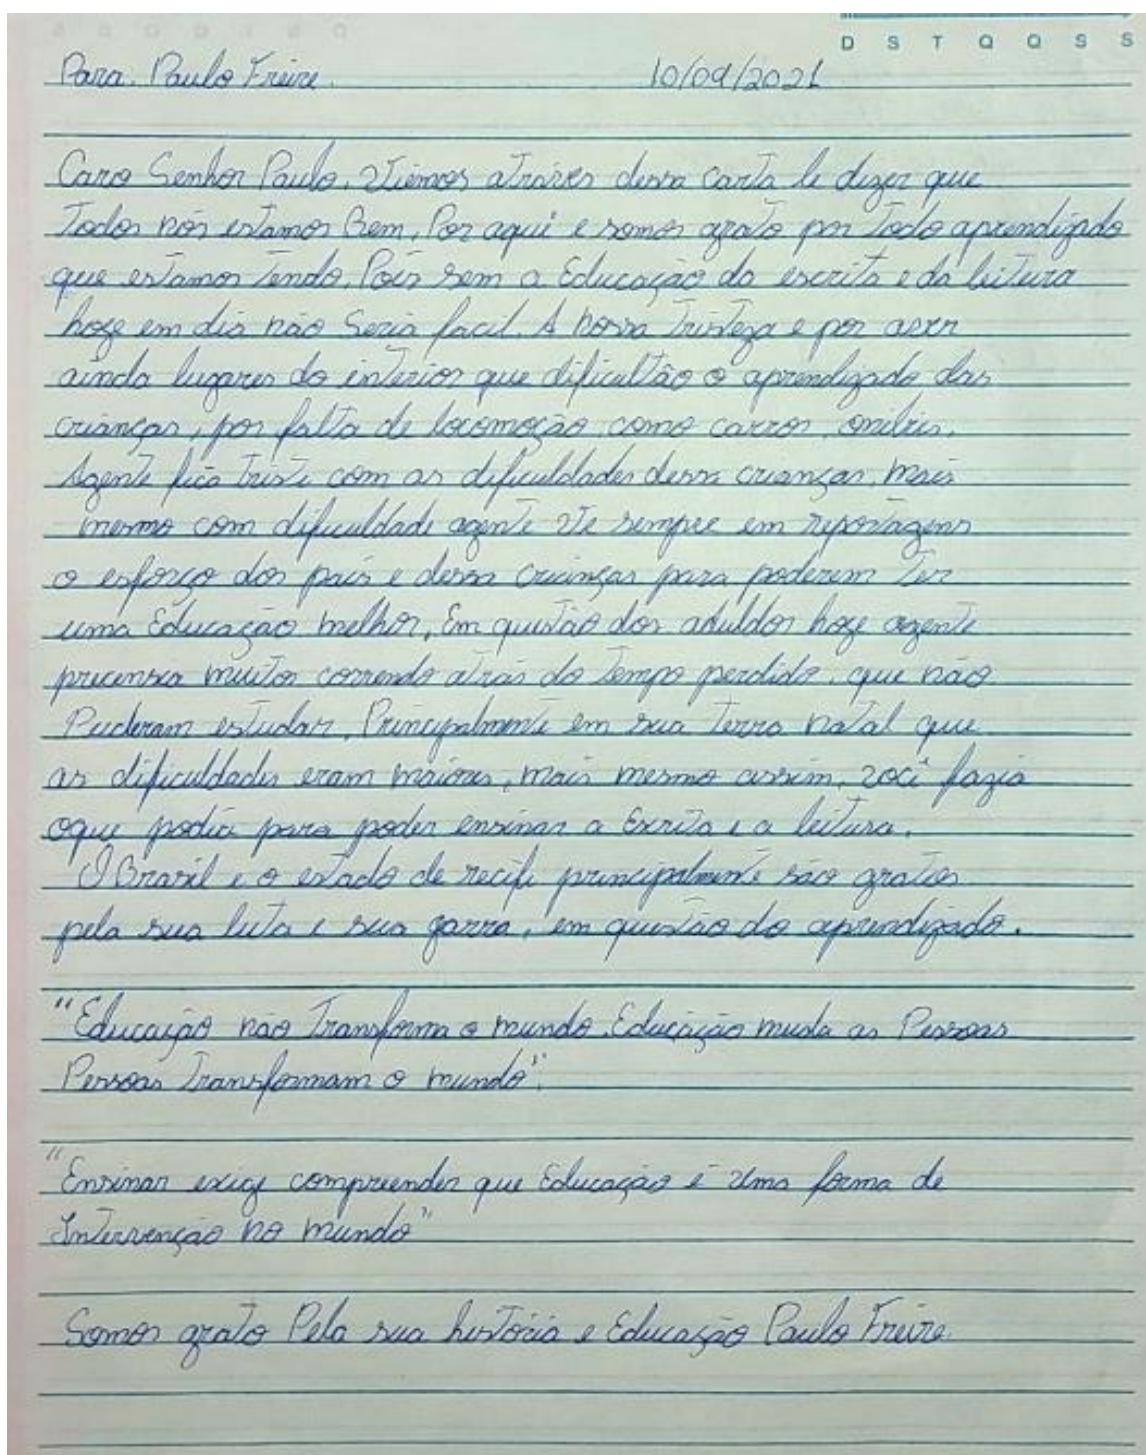 D S T Q Q S S
Para. Paulo Freire. 10/09/2021
Caro Senhor Paulo, Viemos atráves dessa carta le dizer que
Todos nós estamos Bem, Por aqui e somos grato por Todo aprendizado
que estamos Tendo, Pois sem a Educação da escrita e da leitura
hoge em dia não Seria facil. A nossa Tristeza e por aver
ainda lugares do interior que dificultão o aprendizado das
crianças, por falta de locomoção como carros, onibus.
Agente fica triste com as dificuldades dessa crianças, mais
mesmo com dificuldade agente Ve sempre em reportagens
o esforço dos pais e dessa crianças para poderem Ter
uma Educação melhor, Em questão dos aduldos hoge agente
precensia muitos correndo atrás do Tempo perdido, que não
Puderam estudar, Principalmente em sua Terra natal que
as dificuldades eram maiores, mais mesmo assim, você fazia
oque podia para poder ensinar a Escrita e a leitura.
O Brasil e o estado de recife principalmente são gratos
pela sua luta e sua garra, em questão do aprendizado.
"Educação não Transforma o mundo. Educação muda as Pessoas
Pessoas Transformam o mundo".
"Ensinar exige compreender que Educação é Uma forma de
Intervenção no mundo"
Somos grato Pela sua história e Educação Paulo Freire.